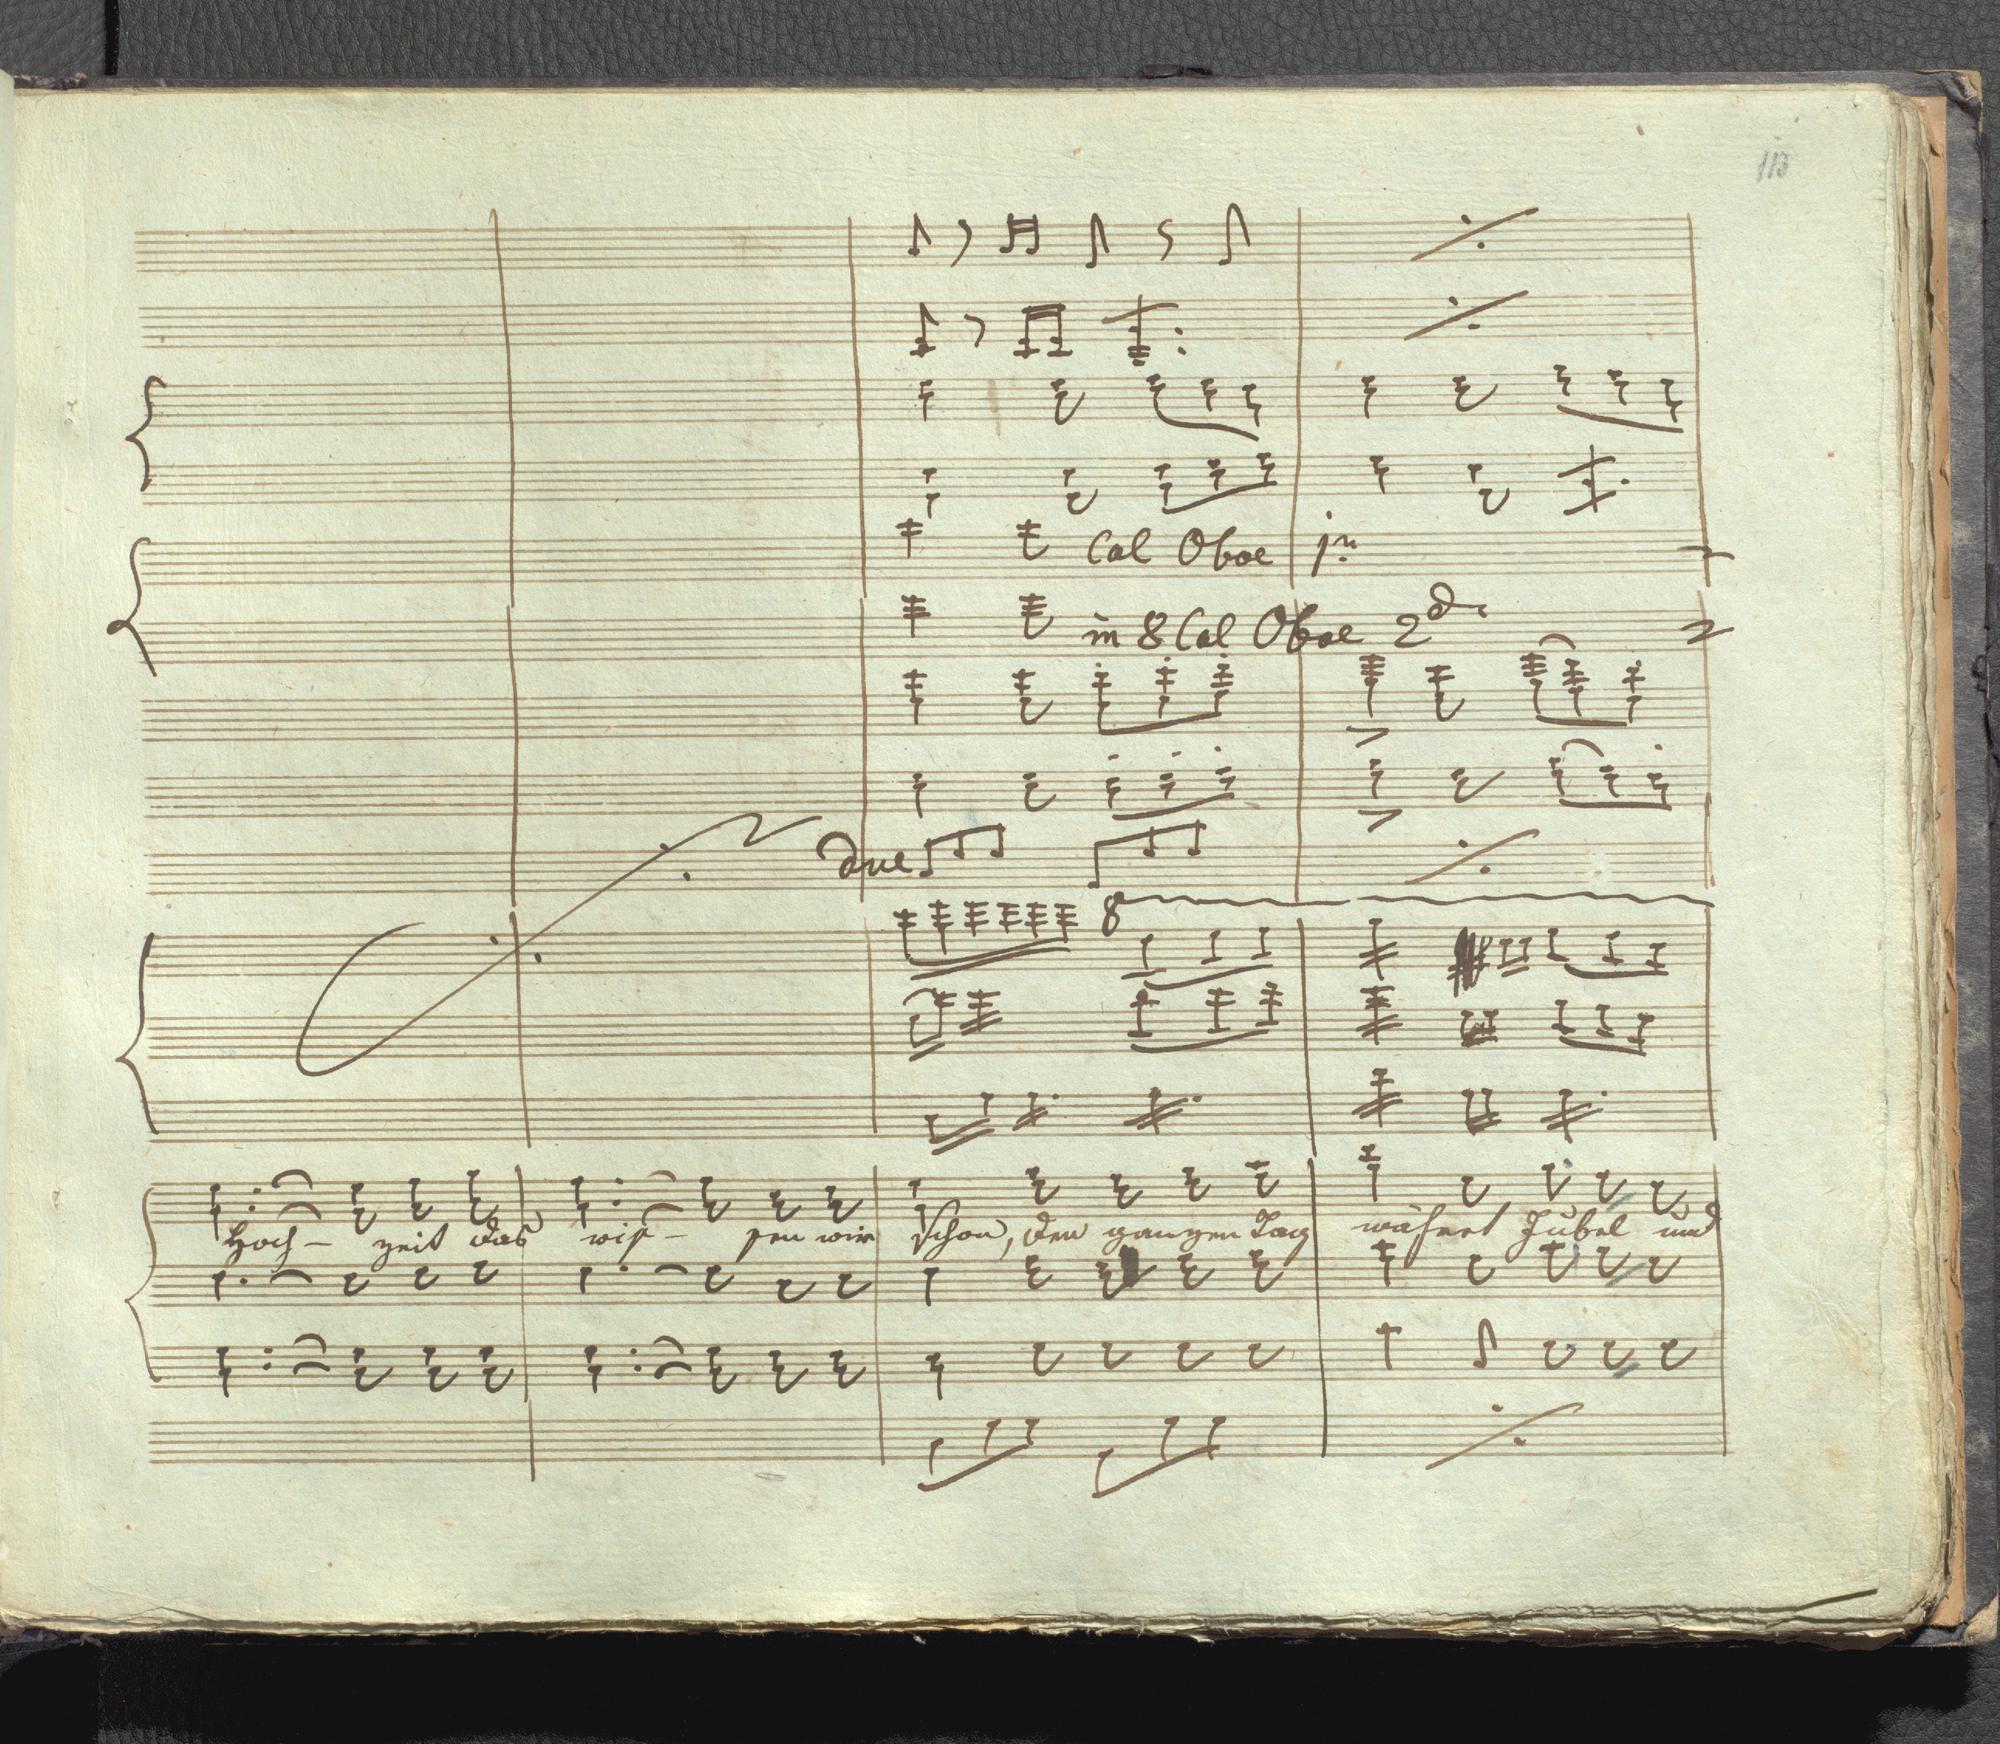 113
Col Oboe 1mo
in 8 Col Oboe 2do
due
8
Hoch- zeit das wis- sen wir schon, den ganzen Tag währet Jubel und